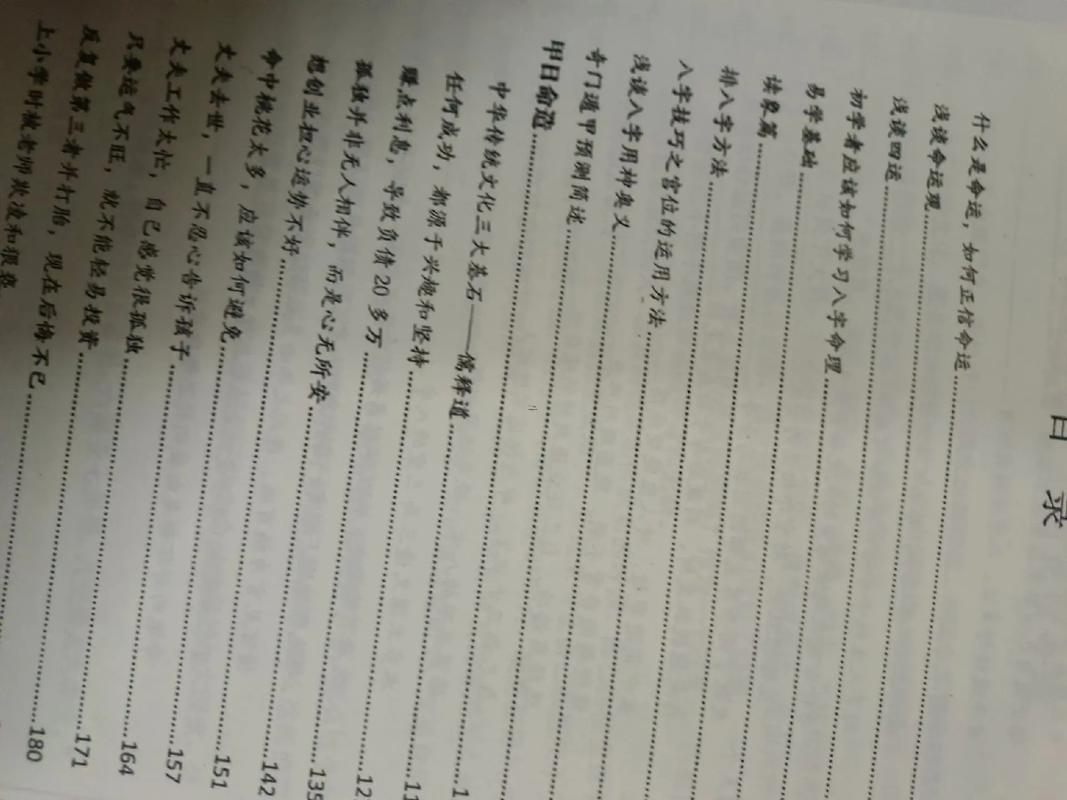 目 录
什么是命运，如何正信命运
浅谈命运观
浅谈四运
初学者应该如何学习八字命理
易学基础
读象篇
排八字方法
八字技巧之宫位的运用方法
浅谈八字用神奥义
奇门遁甲预测简述
甲日命造
中华传统文化三大基石——儒释道
任何成功，都源于兴趣和坚持
赚点利息，导致负债20多万
孤独并非无人相伴，而是心无所安
想创业担心运势不好......135
命中桃花太多，应该如何避免......142
丈夫去世，一直不忍心告诉孩子......151
丈夫工作太忙，自己感觉很孤独......157
只要运气不旺，就不能轻易投资......164
反复做第三者并打胎，现在后悔不已......171
上小学时被老师欺凌和猥亵......180